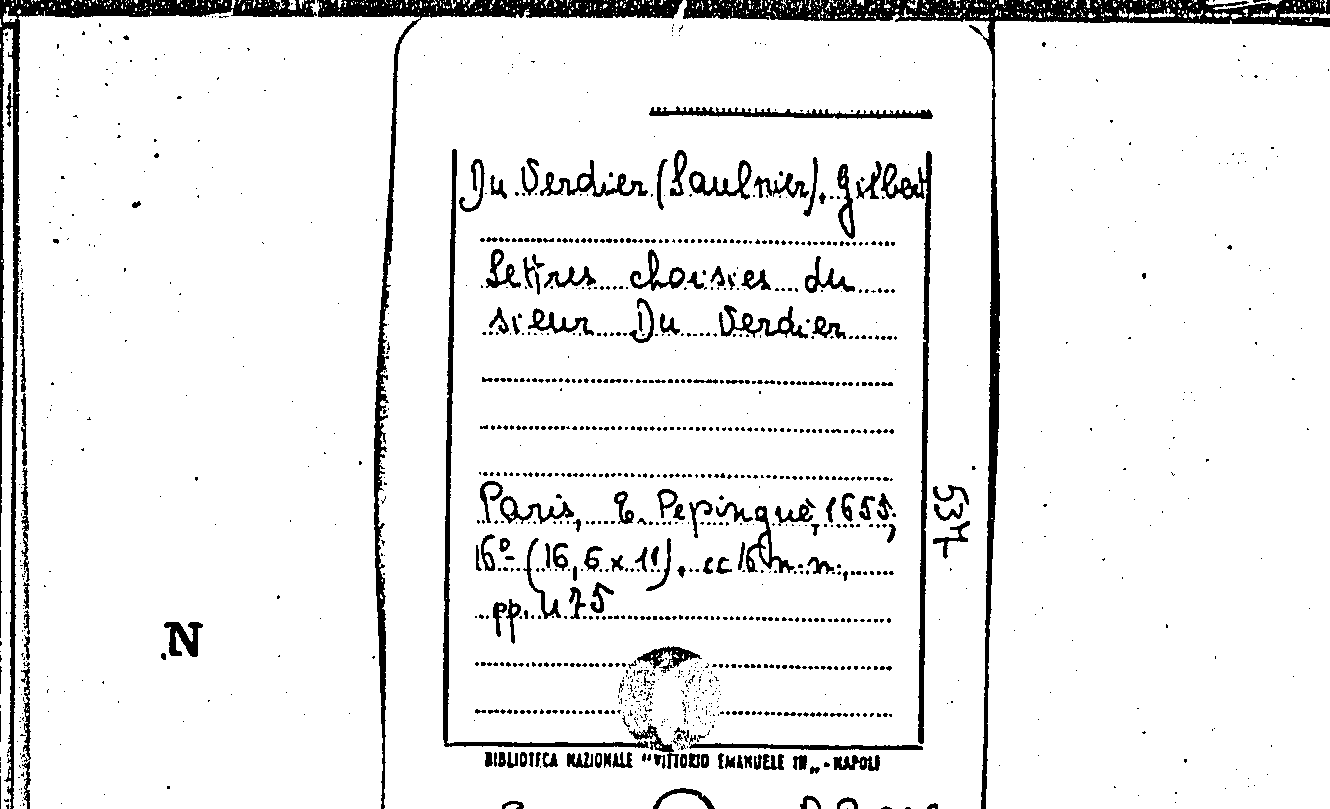 Du Verdier (Saulnier), Gilbert
Lettres choisies du
sieur Du Verdier
Paris, E. Pepinguè, 1655,
16º (16,6 x 11), cc 16 n.n.,
pp. 475
537
N
BIBLIOTECA NAZIONALE "VITTORIO EMANUELE III„ - NAPOLI